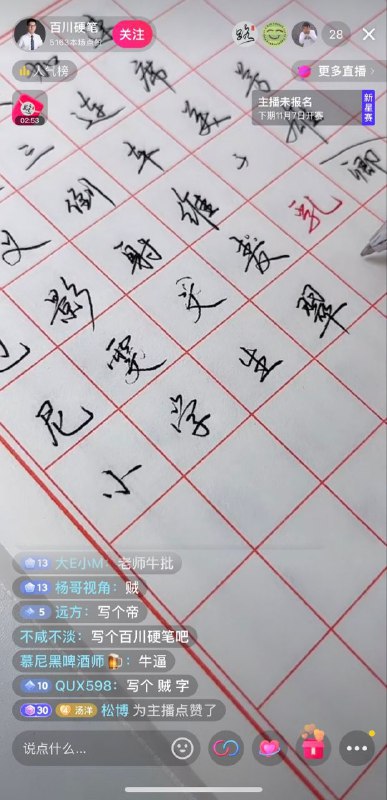 百川硬笔
5163本场点赞
关注
28
人气榜
更多直播
02:53
主播未报名
下期11月7日开赛
新星赛
三 连 席 美 号
义 倒 车 小
影 射 维 乳
尼 雯 又 爱
小 学 生 翠
13 大E小M：老师牛批
13 杨哥视角：贼
5 远方：写个帝
不咸不淡：写个百川硬笔吧
慕尼黑啤酒师🍺：牛逼
10 QUX598：写个 贼 字
30 汤洋 松博 为主播点赞了
说点什么...